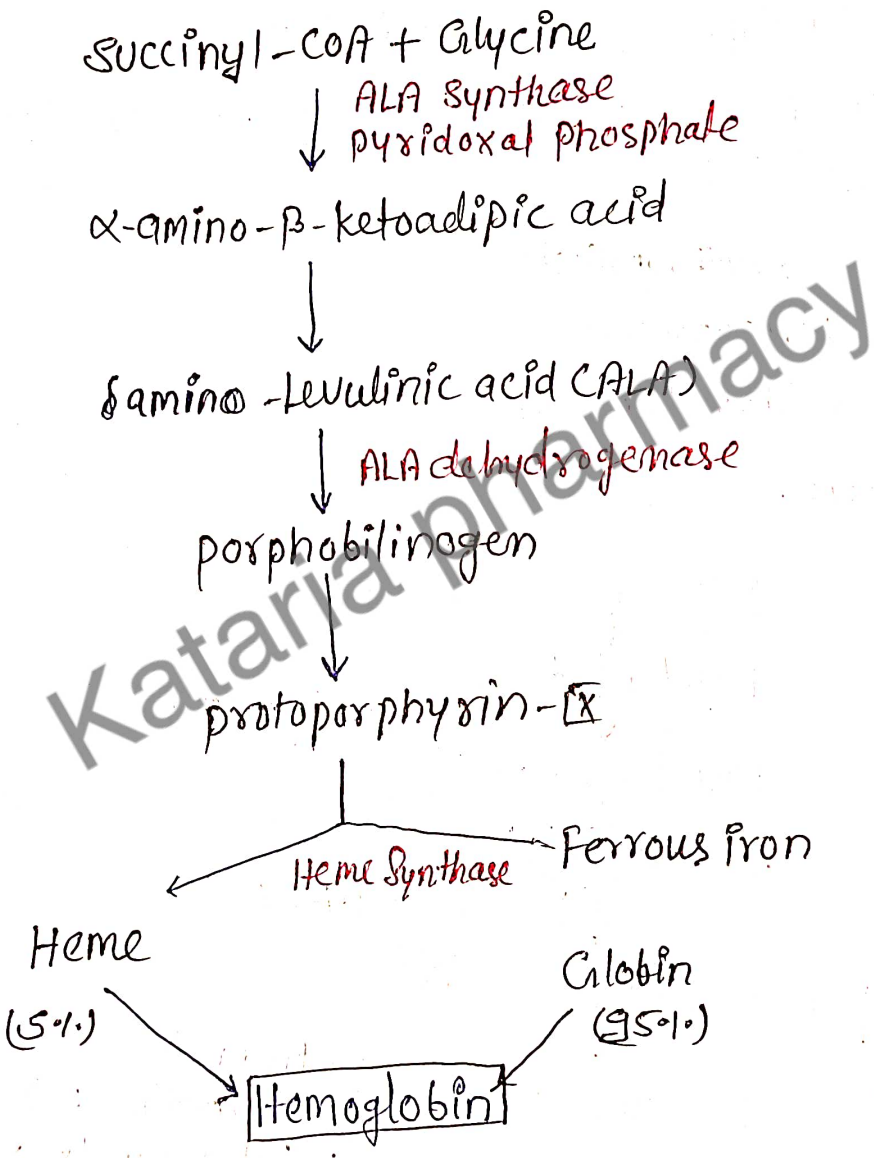 Succinyl-COA + Glycine
ALA Synthase
pyridoxal phosphate
α-amino-β-ketoadipic acid
δ amino-Levulinic acid (ALA)
ALA dehydrogenase
porphobilinogen
protoporphyrin-IX
Ferrous iron
Heme Synthase
Heme
Globin
(5%)
(95%)
Hemoglobin
Kataria pharmacy